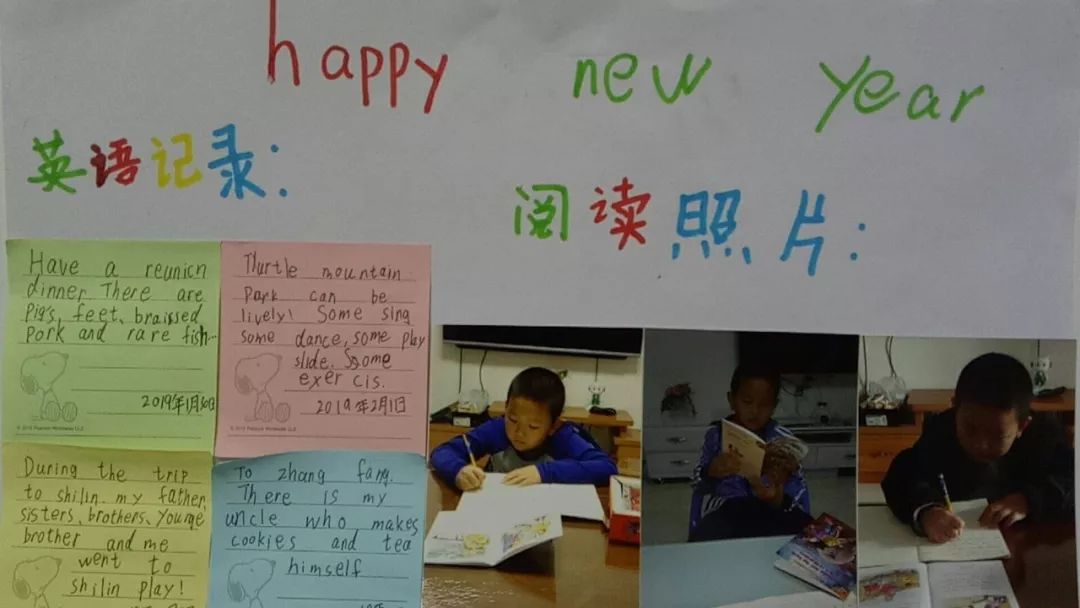 happy new year
英语记录：
阅读照片：
Have a reunion
dinner There are
Pig's, feet, braissed
pork and rare fish...
2019年1月30日
Thurtle mountain
park can be
lively! Some sing
some dance, some play
slide. Ssome
exer cis.
2019年2月1日
During the trip
to shilin my father,
sisters, brothers, Younge
brother and me
went to
shilin play!
To zhang fang.
There is my
uncle who makes
cookies and tea
himself